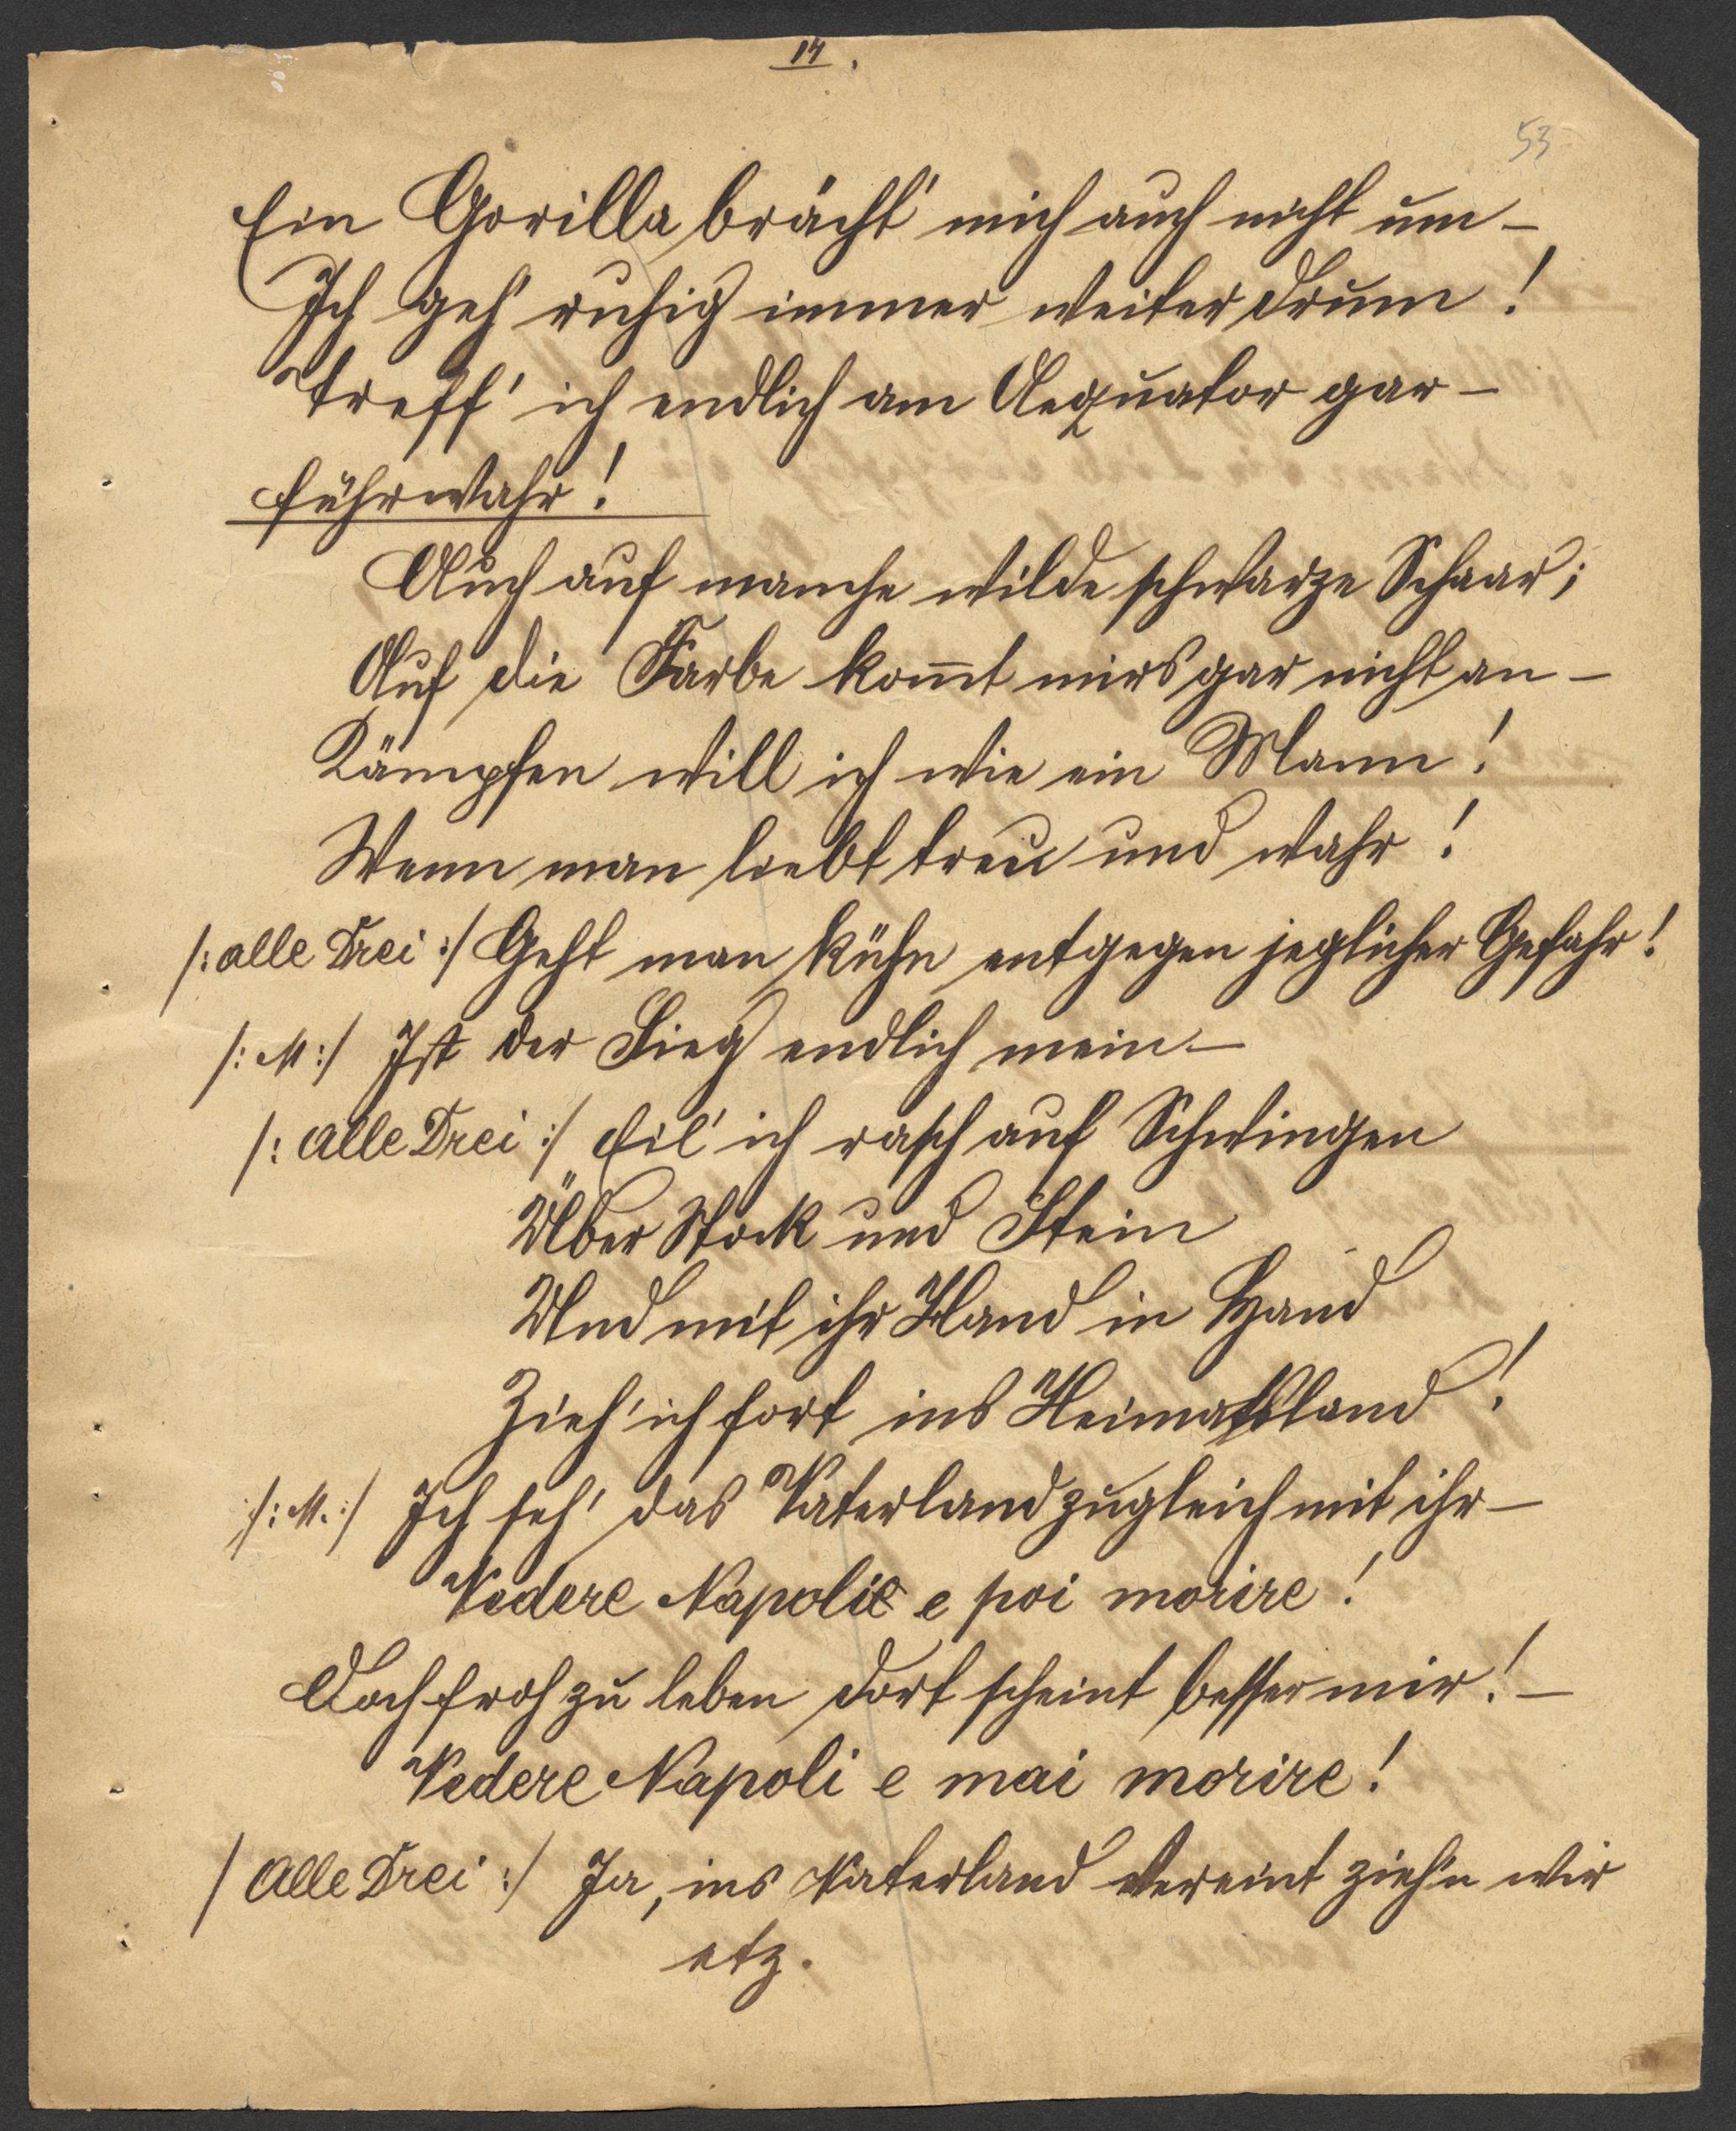 14.
53
Ein Gorilla brächt' mich auch nicht um –
Ich geh' ruhig immer weiter drum!
Treff' ich endlich am Aequator gar –
führwahr!
Auch auf manche wilde schwarze Schaar;
Auf die Farbe kom̅t mirs gar nicht an –
Kämpfen will ich wie ein Mann!
Wenn man liebt treu und wahr!
/: alle Drei :/ Geht man kühn entgegen jeglicher Gefahr!
/: M :/ Ist der Sieg endlich mein –
/: Alle Drei :/ Eil' ich rasch auf Schwingen
Über Stock und Stein
Und mit ihr Hand in Hand
Zieh' ich fort ins Heimatsland!
/: M. :/ Ich seh' das Vaterland zugleich mit ihr –
Vedere Napoli e poi morire!
Doch froh zu leben dort scheint besser mir! –
Vedere Napoli e mai morire!
/ Alle Drei :/ Ja, ins Vaterland vereint zieh'n wir
etz.